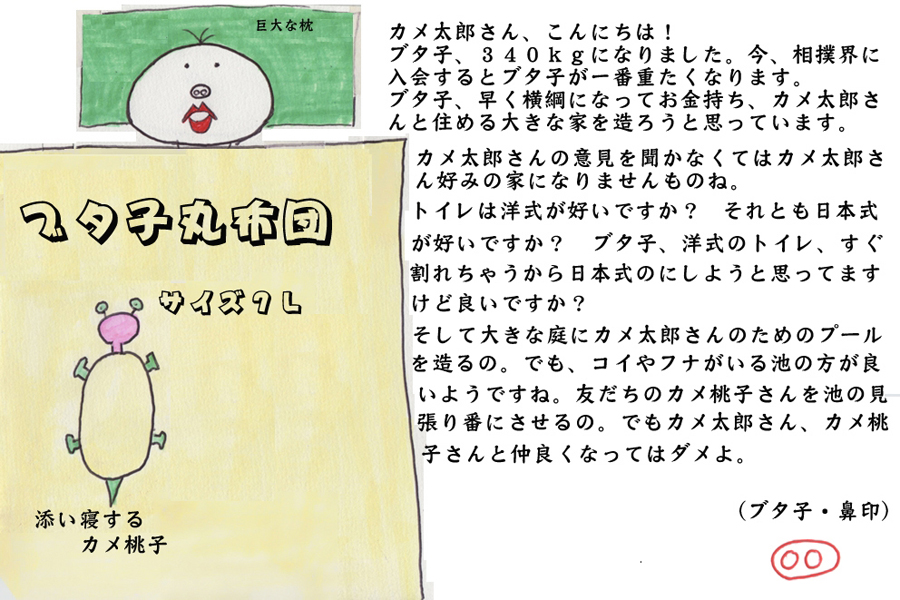 巨大な枕
カメ太郎さん、こんにちは！
ブタ子、３４０ｋｇになりました。今、相撲界に
入会するとブタ子が一番重たくなります。
ブタ子、早く横綱になってお金持ち、カメ太郎さ
んと住める大きな家を造ろうと思っています。
カメ太郎さんの意見を聞かなくてはカメ太郎さ
ん好みの家になりませんものね。
トイレは洋式が好いですか？　それとも日本式
が好いですか？　ブタ子、洋式のトイレ、すぐ
割れちゃうから日本式のにしようと思ってます
けど良いですか？
そして大きな庭にカメ太郎さんのためのプール
を造るの。でも、コイやフナがいる池の方が良
いようですね。友だちのカメ桃子さんを池の見
張り番にさせるの。でもカメ太郎さん、カメ桃
子さんと仲良くなってはダメよ。
（ブタ子・鼻印）
ブタ子丸布団
サイズ７Ｌ
添い寝する
カメ桃子